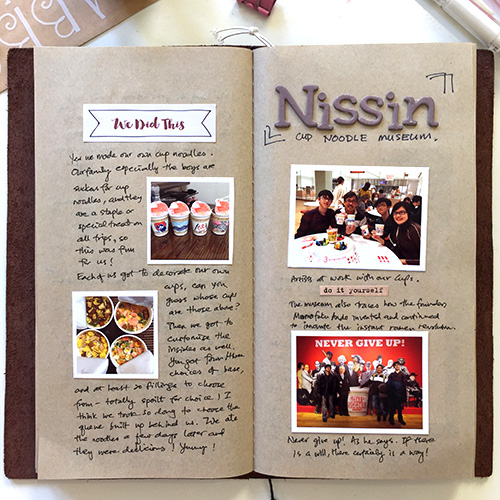 We Did This
Yes we made our own cup noodles.
Our family especially the boys are
suckers for cup
noodles, and they
are a staple or
special treat on
all trips, so
this was fun
for us!
Each of us got to decorate our own
cups, can you
guess whose cups
are those above?
Then we got to
customise the
insides as well.
You get four
choices of base,
and at least 20 fillings to choose
from - totally spoilt for choice! I
think we took so long to choose the
queue built up behind us. We ate
the noodles a few days later and
they were delicious! Yummy!
Nissin
CUP NOODLE MUSEUM.
Artists at work with our cups.
do it yourself
The museum also traces how the founder,
Momofuku Ando invented and continued
to innovate the instant ramen revolution.
NEVER GIVE UP!
Never give up! As he says. If there
is a will, there certainly is a way!